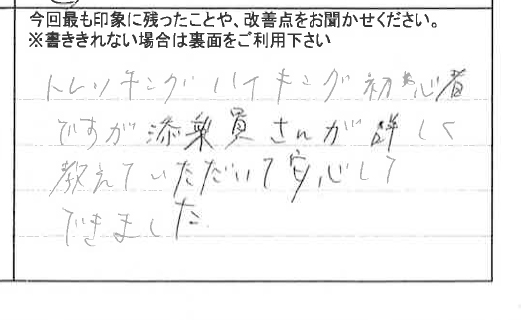 今回最も印象に残ったことや、改善点をお聞かせください。
※書ききれない場合は裏面をご利用下さい
トレッキングハイキング初心者
ですが添乗員さんが詳しく
教えていただいて安心して
できました